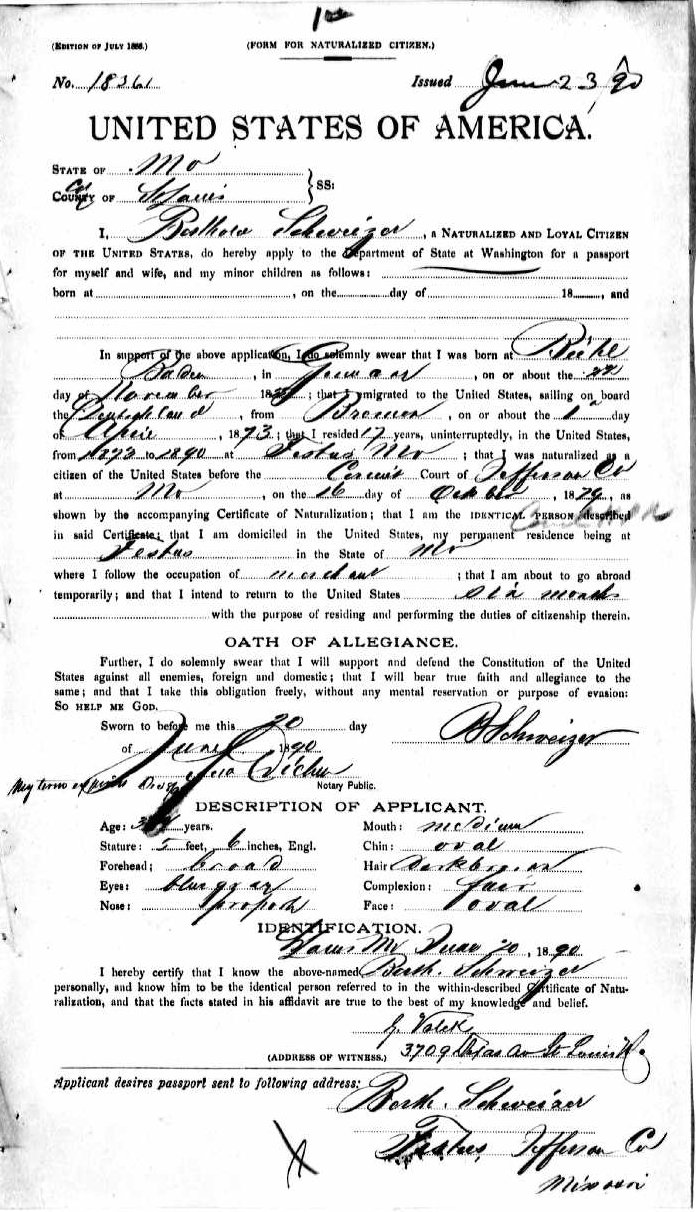 (EDITION OF JULY 1888.) (FORM FOR NATURALIZED CITIZEN.)
No. 18361 Issued June 23/90
UNITED STATES OF AMERICA.
STATE OF Mo
COUNTY OF St Louis } SS:
I, Berthold Schweizer, a NATURALIZED AND LOYAL CITIZEN
OF THE UNITED STATES, do hereby apply to the Department of State at Washington for a passport
for myself and wife, and my minor children as follows:
born at , on the day of 18 , and
In support of the above application, I do solemnly swear that I was born at
Baden, in Germany, on or about the 22
day of November 18 ; that I emigrated to the United States, sailing on board
the , from Bremen, on or about the 1st day
of April, 1873; that I resided 17 years, uninterruptedly, in the United States,
from 1873 to 1890 at Festus Mo; that I was naturalized as a
citizen of the United States before the Circuit Court of Jefferson Co
at Mo, on the 16 day of October, 1879, as
shown by the accompanying Certificate of Naturalization; that I am the IDENTICAL PERSON described
in said Certificate; that I am domiciled in the United States, my permanent residence being at
Festus in the State of Mo
where I follow the occupation of merchant; that I am about to go abroad
temporarily; and that I intend to return to the United States six months
with the purpose of residing and performing the duties of citizenship therein.
OATH OF ALLEGIANCE.
Further, I do solemnly swear that I will support and defend the Constitution of the United
States against all enemies, foreign and domestic; that I will bear true faith and allegiance to the
same; and that I take this obligation freely, without any mental reservation or purpose of evasion:
SO HELP ME GOD.
Sworn to before me this 20 day B Schweizer
of June 1890
Notary Public.
My term expires
DESCRIPTION OF APPLICANT.
Age: years. Mouth: medium
Stature: 5 feet, 6 inches, Engl. Chin: oval
Forehead; broad Hair Dark brown
Eyes: blue gray Complexion: fair
Nose: proport Face: oval
IDENTIFICATION.
St Louis Mo June 20, 1890
I hereby certify that I know the above-named Berth. Schweizer
personally, and know him to be the identical person referred to in the within-described Certificate of Natu-
ralization, and that the facts stated in his affidavit are true to the best of my knowledge and belief.
(ADDRESS OF WITNESS.) 3709 Texas Av St Louis Mo
Applicant desires passport sent to following address:
Berth. Schweizer
Festus, Jefferson Co
Missouri